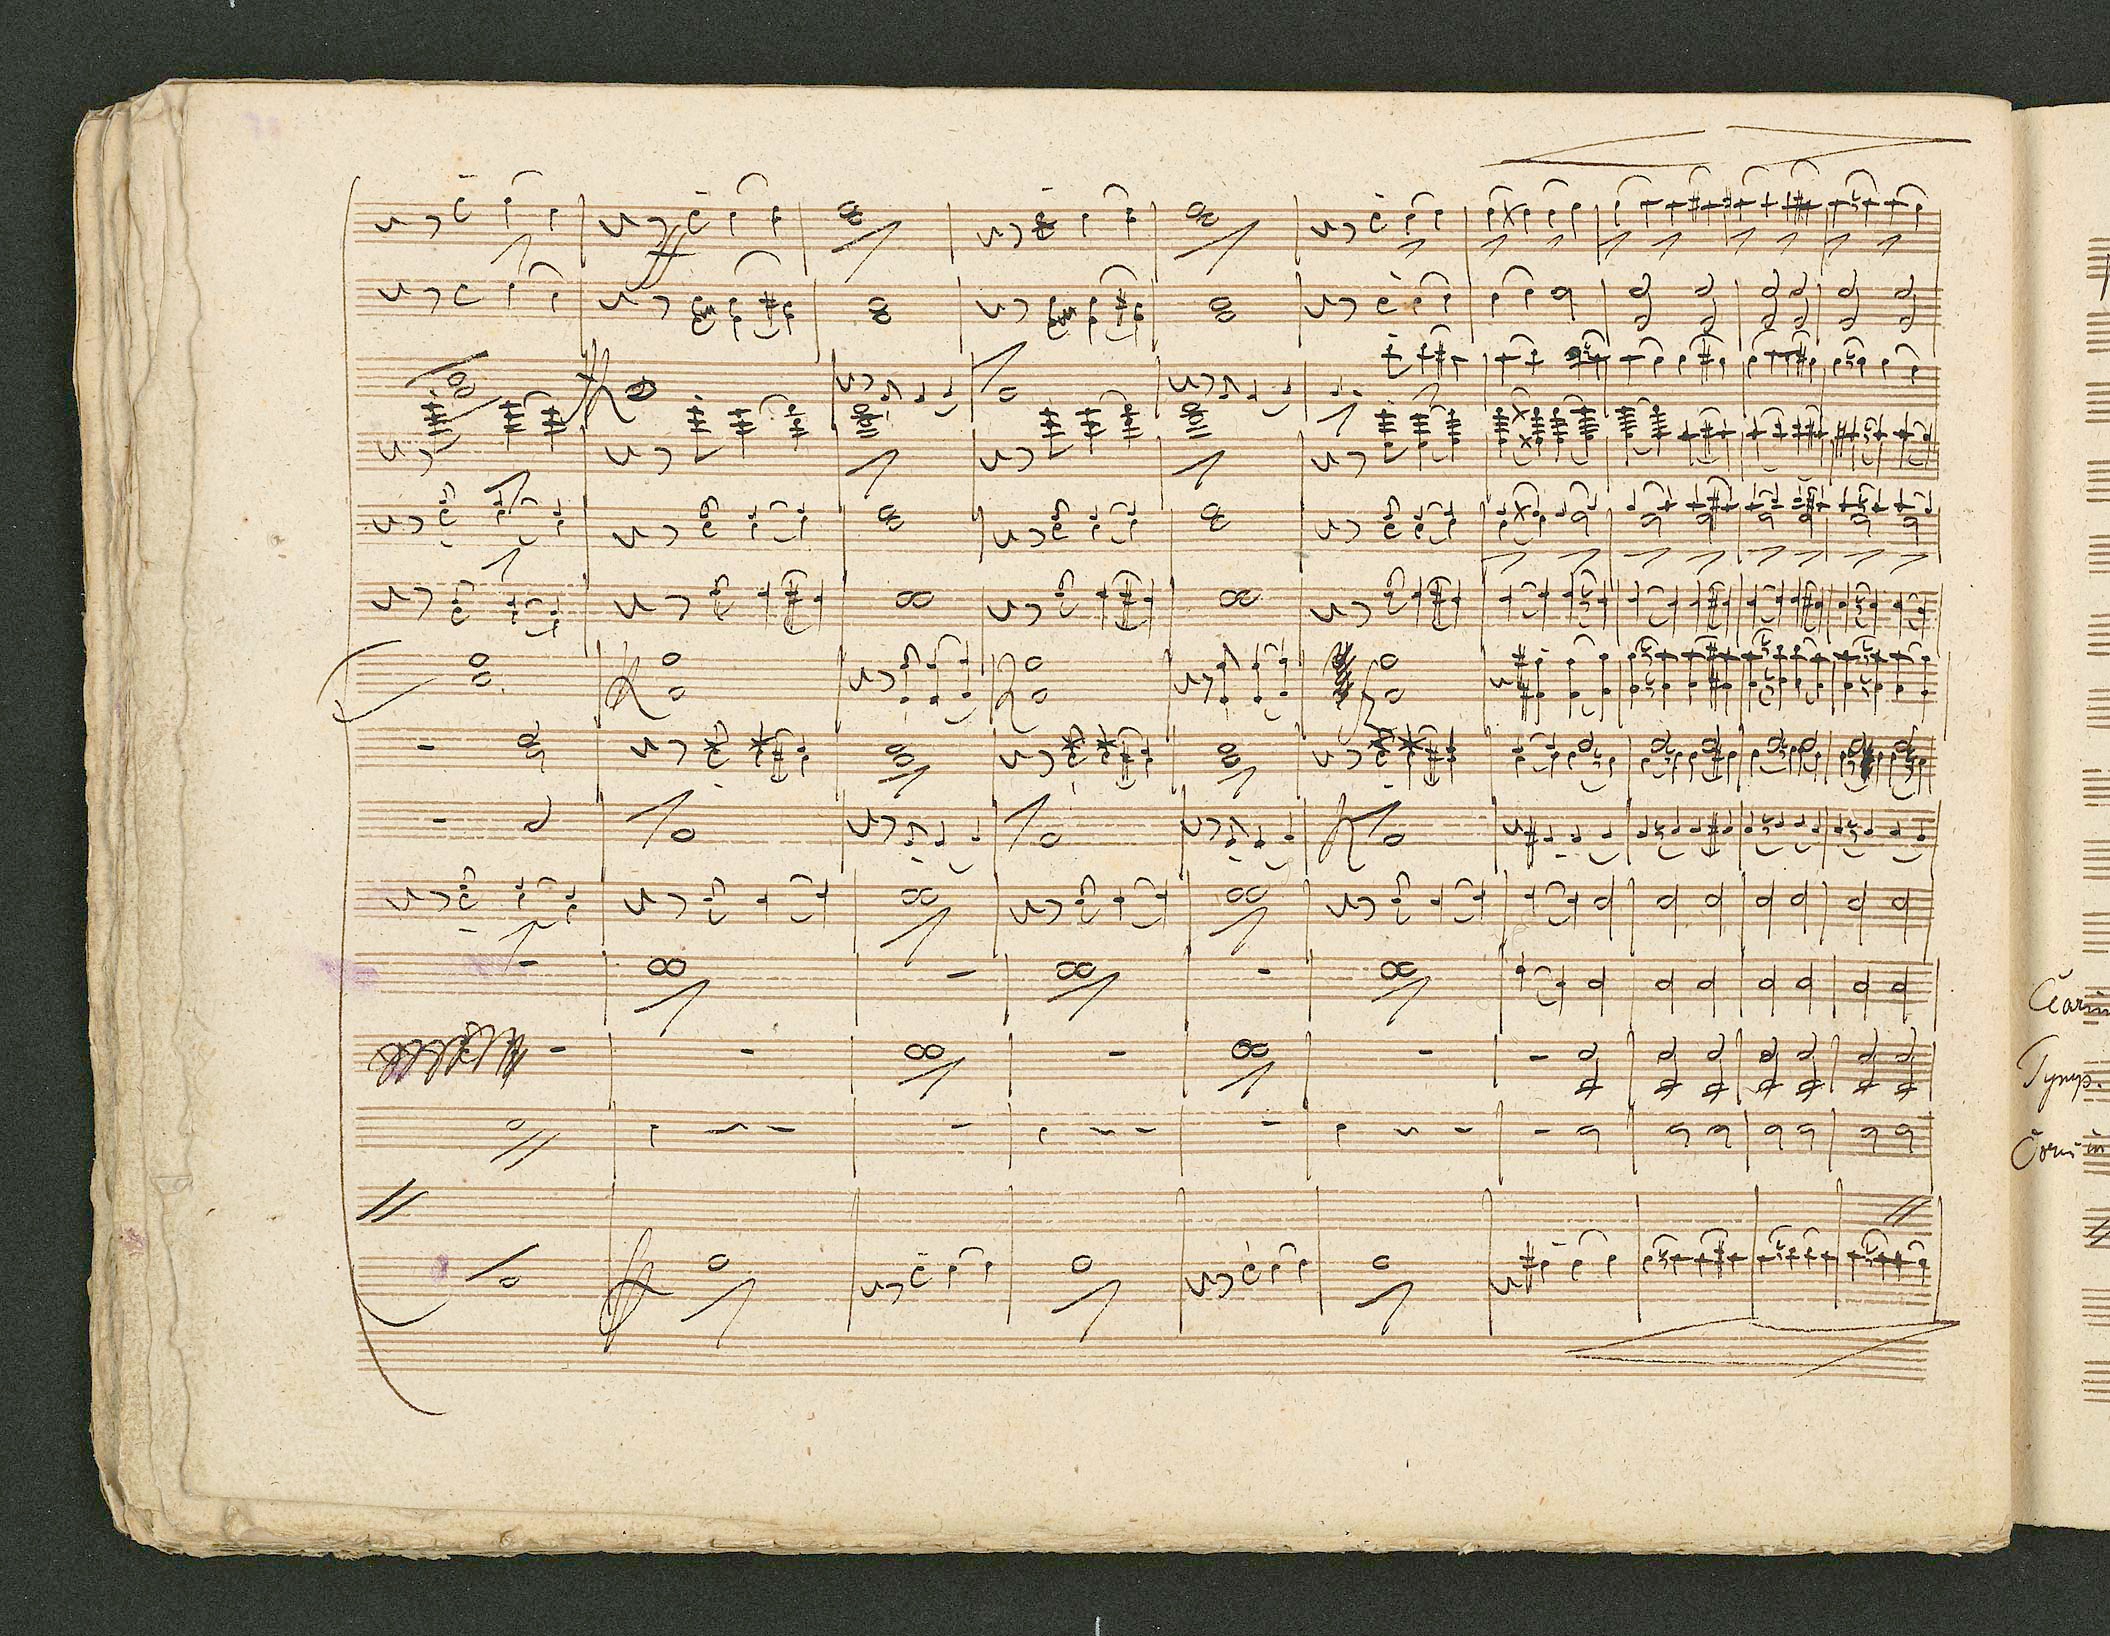 ff
Clarin
Tymp.
Corni in